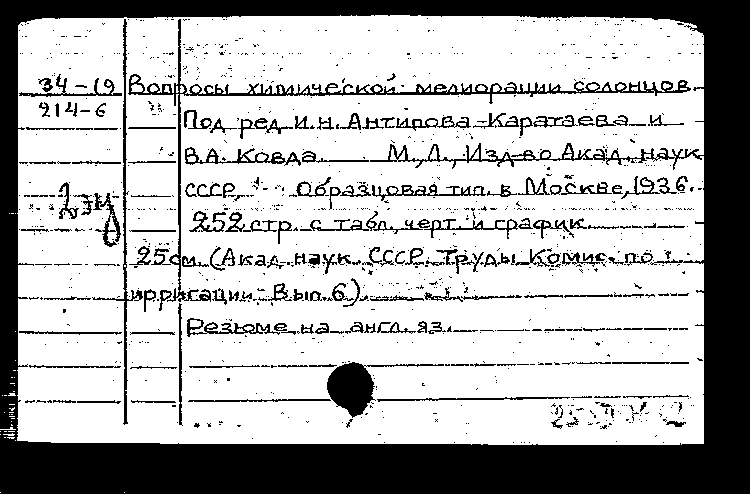 34-19 Вопросы химической мелиорации солонцов.
214-6
Под ред И.Н. Антипова-Каратаева и
В.А. Ковда. М., Л., Изд-во Акад. наук
СССР, Образцовая тип. в Москве, 1936.
2 экз
252 стр. с табл., черт. и график.
25 см. (Акад. наук СССР. Труды Комис. по
ирригации Вып. 6).
Резюме на англ. яз.